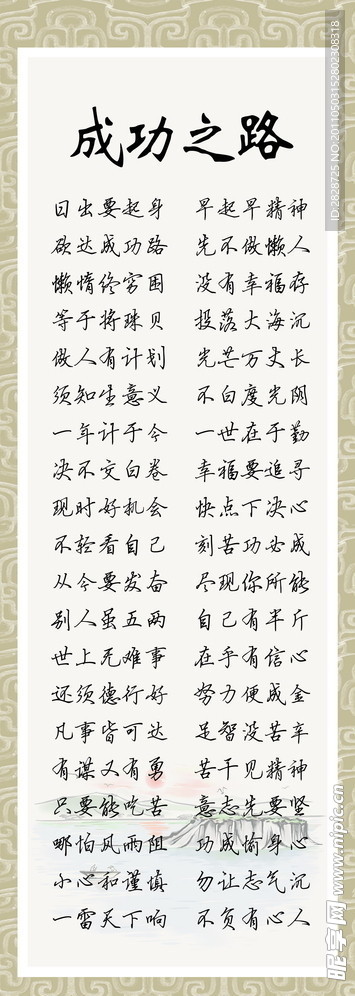 成功之路
日出要起身 早起早精神
欲达成功路 先不做懒人
懒惰终穷困 没有幸福存
等于将珠贝 投落大海沉
做人有计划 光芒万丈长
须知生意义 不白度光阴
一年计于今 一世在于勤
决不交白卷 幸福要追寻
现时好机会 快点下决心
不轻看自己 刻苦功必成
从今要发奋 尽现你所能
别人虽五两 自己有半斤
世上无难事 在乎有信心
还须德行好 努力便成金
凡事皆可达 足智没苦辛
有谋又有勇 苦干见精神
只要能吃苦 意志先要坚
哪怕风雨阻 功成愉身心
小心和谨慎 勿让志气沉
一雷天下响 不负有心人
ID:2828725 NO:20110503152802308318
昵享网 www.nipic.cn